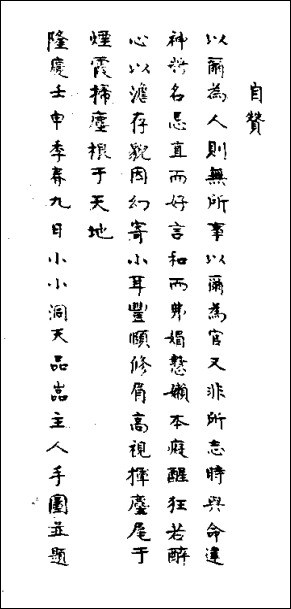 自贊
以爾為人則無所事以爾為官又非所志時與命違
神將名忌直而好言和而弗媚憨嬾本癡醒狂若醉
心以澹存貌因幻寄小耳豐頤修眉高視揮麈尾于
煙霞掃塵根于天地
隆慶壬申季春九日小小洞天品嵓主人手圖並題